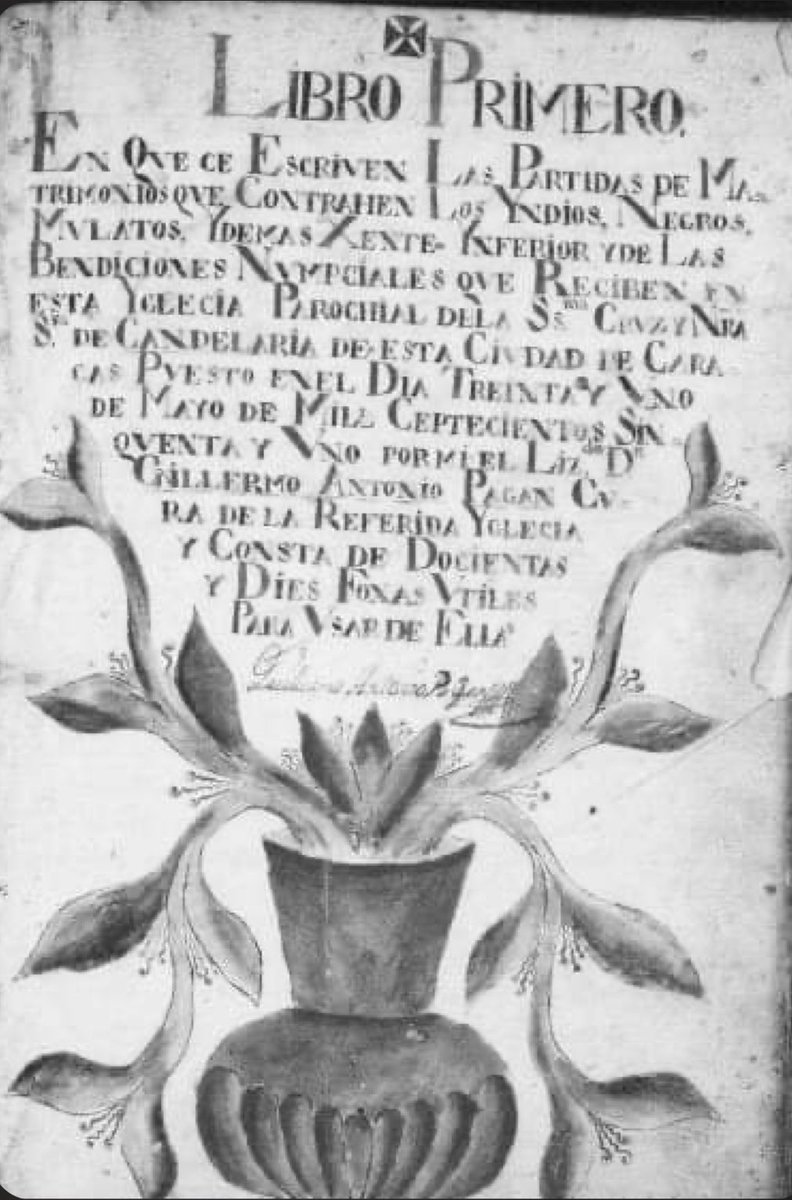 LIBRO PRIMERO.
EN QVE CE ESCRIVEN LAS PARTIDAS DE MA-
TRIMONIOS QVE CONTRAHEN LOS YNDIOS, NEGROS,
MVLATOS, YDEMAS XENTE YNFERIOR YDE LAS
BENDICIONES NVMPCIALES QVE RECIBEN EN
ESTA YGLECIA PAROCHIAL DELA SSma CRUZ Y NRA
Sra. DE CANDELARIA DE ESTA CIUDAD DE CARA
CAS PVESTO ENEL DIA TREINTA Y VNO
DE MAYO DE MILL CEPTECIENTOS SIN-
QVENTA Y VNO POR MI EL Lizdo Dn
GUILLERMO ANTONIO PAGAN CU-
RA DE LA REFERIDA YGLECIA
Y CONSTA DE DOCIENTAS
Y DIES FOXAS VTILES
PARA VSAR DE ELLA